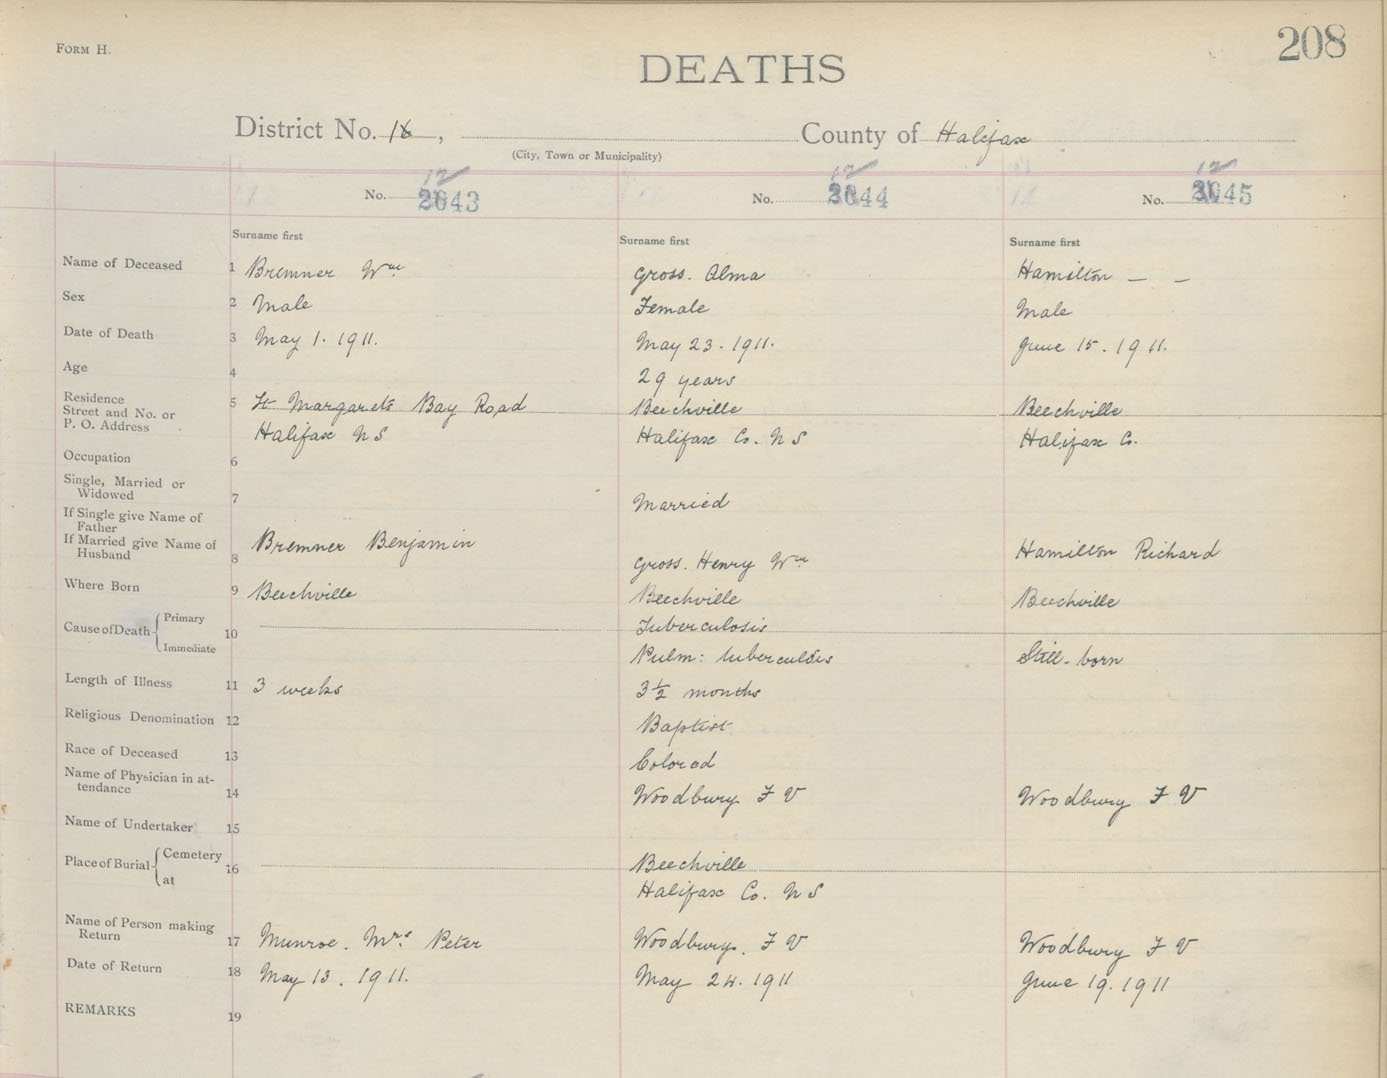 FORM H.
208
DEATHS
District No. 18, County of Halifax
(City, Town or Municipality)
12 12 12
No. 2043 No. 2044 No. 2045
Surname first Surname first Surname first
Name of Deceased 1 Bremner Wm Gross. Alma Hamilton — —
Sex 2 Male Female Male
Date of Death 3 May 1. 1911. May 23. 1911. June 15. 1911.
Age 4 29 years
Residence 5 St Margarets Bay Road Beechville Beechville
Street and No. or
P. O. Address Halifax N S Halifax Co. N S Halifax Co.
Occupation 6
Single, Married or
Widowed 7 Married
If Single give Name of
Father
If Married give Name of
Husband 8 Bremner Benjamin Gross. Henry Wm Hamilton Richard
Where Born 9 Beechville Beechville Beechville
Cause of Death 10 Primary Tuberculosis
Immediate Pulm: tuberculosis Still-born
Length of Illness 11 3 weeks 3½ months
Religious Denomination 12 Baptist
Race of Deceased 13 Colored
Name of Physician in at-
tendance 14 Woodbury F V Woodbury F V
Name of Undertaker 15
Place of Burial 16 Cemetery Beechville
at Halifax Co. N S
Name of Person making
Return 17 Munroe. Mrs Peter Woodbury. F V Woodbury F V
Date of Return 18 May 13. 1911. May 24. 1911 June 19. 1911
REMARKS 19